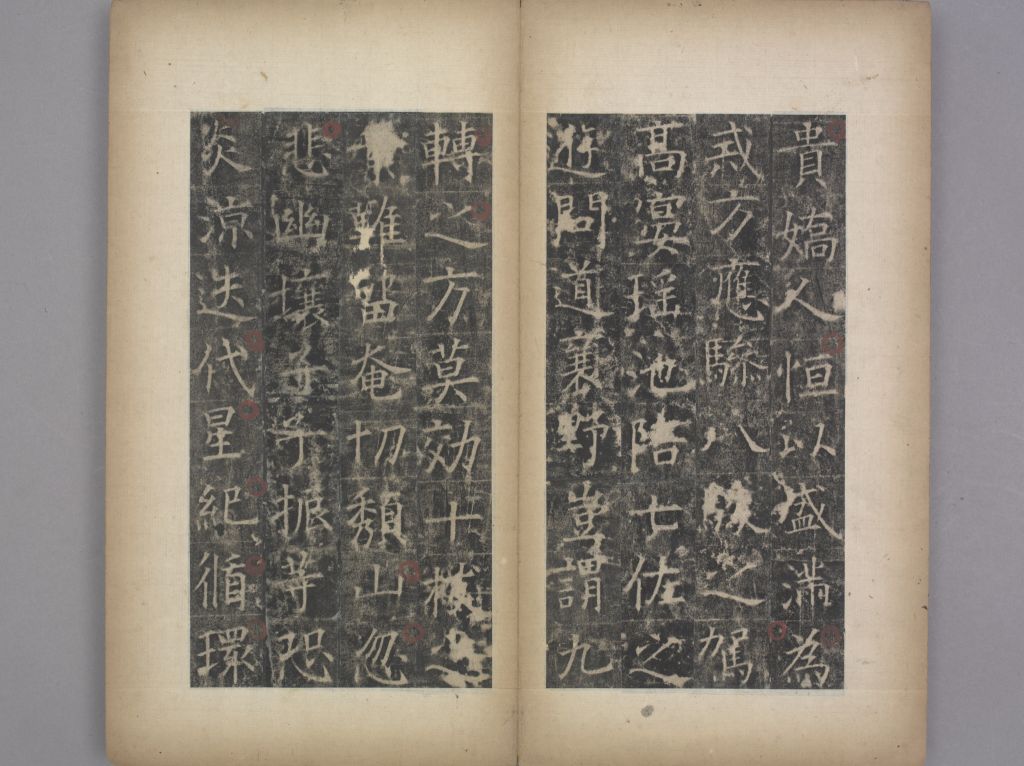 貴嬌人恒以盛滿為
戒方應驂八駿之駕
高宴瑤池陪七佐之
遊問道襄野豈謂九
轉之方莫効十枝之
難留奄切頹山忽
悲幽壤子予振等恐
炎涼迭代星紀循環